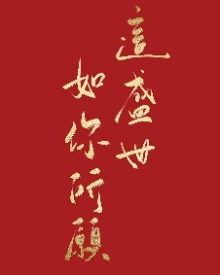 這盛世
如你所願